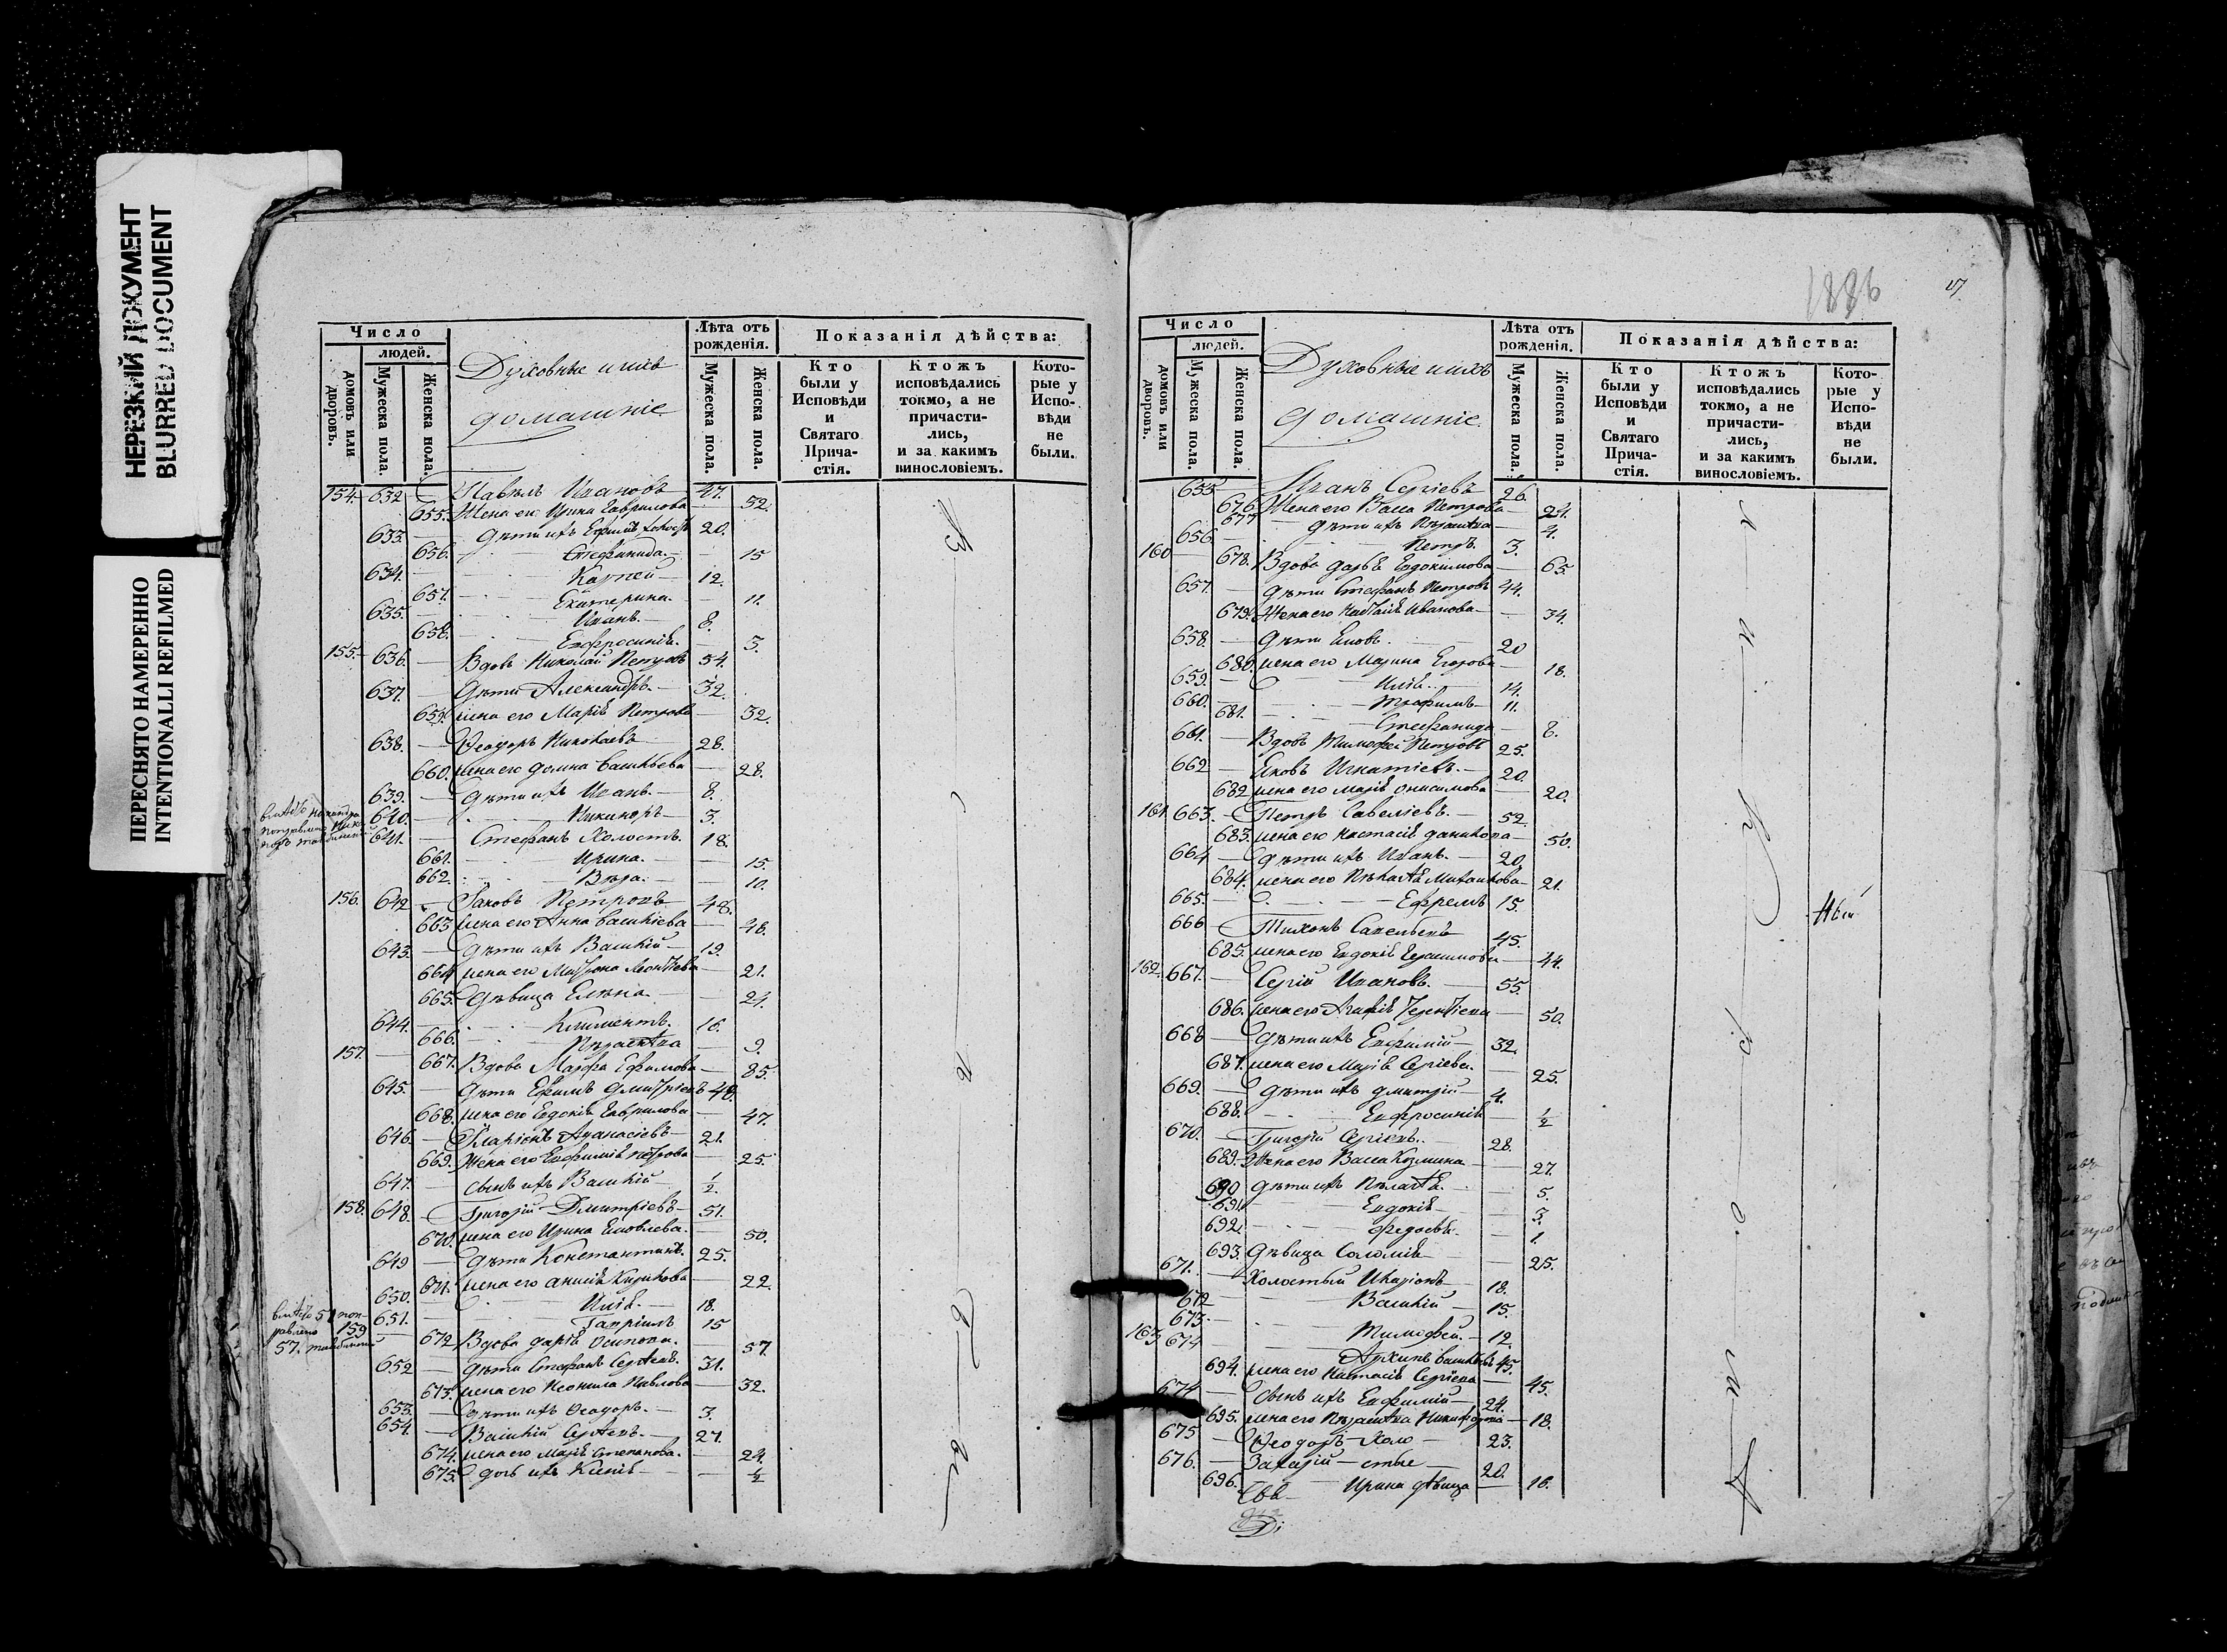 НЕРЕЗКИЙ ДОКУМЕНТ
BLURRED DOCUMENT
ПЕРЕСНЯТО НАМЕРЕННО
INTENTIONALLI REFILMED
Число
людей.
домовъ или дворовъ.
Мужеска пола.
Женска пола.
Духовные и ихъ
домашніе
Лѣта отъ рожденія.
Мужеска пола.
Женска пола.
Показанія дѣйства:
Кто были у Исповѣди и Святаго Причастія.
Ктожъ исповѣдались токмо, а не причастились, и за какимъ винословіемъ.
Которые у Исповѣди не были.
154. 632 Павелъ Ивановъ 47.
655. Жена его Ирина Гаврилова 52.
633. дѣти ихъ Ефимъ холостъ 20.
656. Стефанида 15
634. Карпей 12.
657. Екатерина 11.
635. Иванъ 8.
658. Евфросинія 3.
155. 636. Вдовъ Николай Петровъ 54.
637. Дѣти Александръ 32.
659. жена его Марія Петрова 32.
638. Ѳеодоръ Николаевъ 28.
660. жена его Домна Васильева 28.
639. Дѣти ихъ Иванъ 8.
640. Никиноръ 3.
641. Стефанъ Холостъ 18.
661. Ирина 15.
662. Вѣра 10.
156. 642 Іаковъ Петровъ 48.
663 жена его Анна Васильева 48.
643. дѣти ихъ Василій 19.
664 жена его Матрона Леонтьева 21.
665. Дѣвица Елена 24.
644. Климентъ 16.
666. Прасковья 9.
157. 667. Вдова Марфа Ефимова 85.
645. Дѣти Ефимъ Дмитріевъ 48.
668. жена его Евдокія Гаврилова 47.
646. Иларіонъ Аѳанасіевъ 21.
669. Жена его Евфимія Петрова 25.
647. сынъ ихъ Василій ½.
158. 648. Григорій Дмитріевъ 51.
670. жена его Ирина Яковлева 50.
649 Дѣти Константинъ 25.
671. жена его Анисія 22.
650. Илія 18.
651. Гавріилъ 15
159
672 Вдова Дарія Осипова 57
652 Дѣти Стефанъ Сергѣевъ 31.
673. жена его Неонила Павлова 32.
653. дѣти ихъ Ѳеодоръ 3.
654. Василій Сергѣевъ 27.
674. жена его Марія Степанова 24.
675. дочь ихъ Ксенія ½
1886
17
Число
людей.
домовъ или дворовъ.
Мужеска пола.
Женска пола.
Духовные и ихъ
домашніе.
Лѣта отъ рожденія.
Мужеска пола.
Женска пола.
Показанія дѣйства:
Кто были у Исповѣди и Святаго Причастія.
Ктожъ исповѣдались токмо, а не причастились, и за какимъ винословіемъ.
Которые у Исповѣди не были.
655 Иванъ Сергіевъ 26.
676 Жена его Васса Петрова 24.
677 дѣти ихъ 4.
656. Петръ 3.
160 678. Вдова Дарья Евдокимова 65.
657. дѣти Стефанъ Петровъ 44.
679. Жена его Наталія Иванова 34.
658 Дѣти Яковъ 20
680. жена его Марина Егорова 18.
659. Илія 14.
660. Трофимъ 11.
681. Стефанида 8.
661. Вдовъ Тимофей Петровъ 25.
662 Яковъ Игнатіевъ 20.
682 жена его Марія Онисимова 20.
161 663. Петръ Савеліевъ 52.
683. жена его Настасія Данилова 50.
664 дѣти ихъ Иванъ 20.
684. жена его Пелагія Михайлова 21.
665. Ефремъ 15.
666 Тихонъ Савельевъ 45.
685. жена его Евдокія Герасимова 44.
162. 667. Сергій Ивановъ 55.
686. жена его Агафія Терентіева 50.
668 дѣти ихъ Евфимій 32.
687. жена его Марія Сергіева 25.
669. дѣти ихъ Дмитрій 4.
688. Евфросинія ½
670. Григорій Сергіевъ 28.
689. Жена его Васса Козмина 27.
690 дѣти ихъ Пелагѣя 5.
691 Евдокія 3.
692 Федосья 1.
693. Дѣвица Соломія 25.
671. Холостый Иларіонъ 18.
672 Василій 15.
673. Тимофей 12.
163 674 Архипъ Васильевъ 45.
694. жена его Настасія Сергіева 45.
674 Сынъ ихъ Евфимій 24.
695. жена его Никифорова 18.
675 Ѳеодоръ Холо 23.
676. Захарій стые 20.
696. Ирина дѣвица 16.